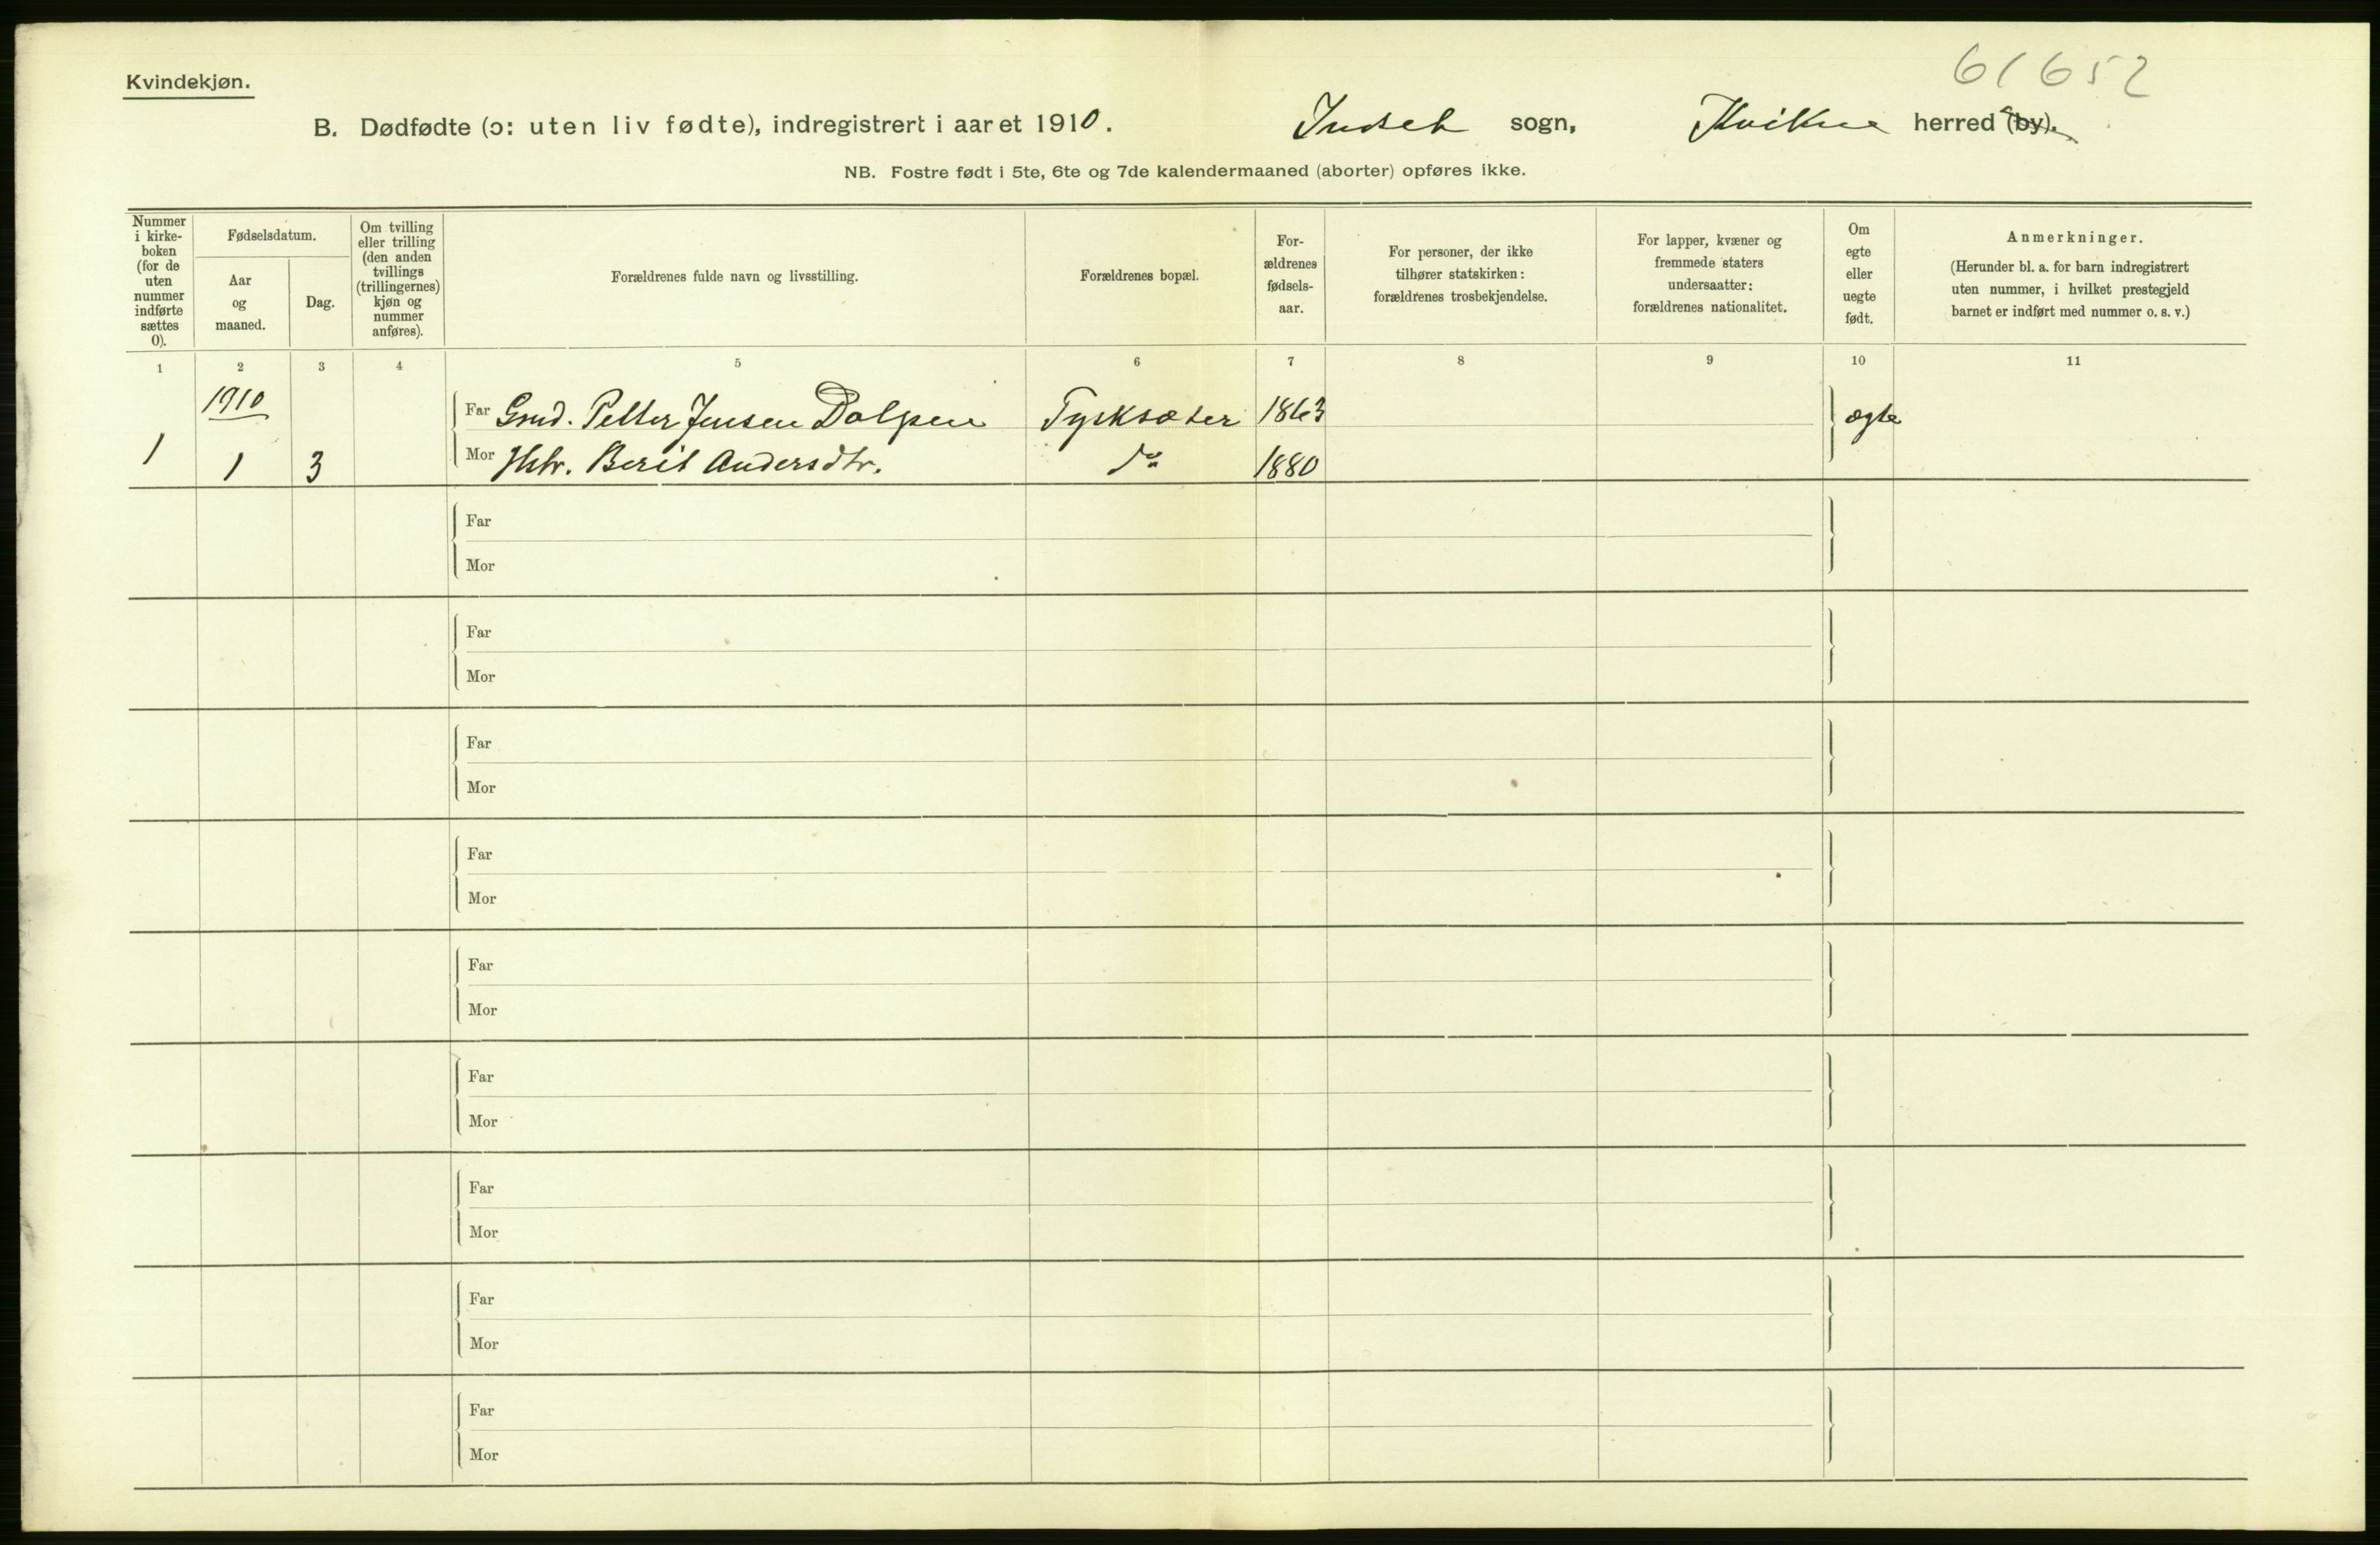 61652
Kvindekjøn.
B. Dødfødte (ɔ: uten liv fødte), indregistrert i aaret 1910. Indset sogn, Kvikne herred (by).
NB. Fostre født i 5te, 6te og 7de kalendermaaned (aborter) opføres ikke.
Nummer i kirke-boken (for de uten nummer indførte sættes 0).
Fødselsdatum.
Aar og maaned.
Dag.
Om tvilling eller trilling (den anden tvillings (trillingernes) kjøn og nummer anføres).
Forældrenes fulde navn og livsstilling.
Forældrenes bopæl.
For-ældrenes fødsels-aar.
For personer, der ikke tilhører statskirken: forældrenes trosbekjendelse.
For lapper, kvæner og fremmede staters undersaatter: forældrenes nationalitet.
Om egte eller uegte født.
Anmerkninger.
(Herunder bl. a. for barn indregistrert uten nummer, i hvilket prestegjeld barnet er indført med nummer o. s. v.)
1 2 3 4 5 6 7 8 9 10 11
1910
Far Grd. Petter Jensen Dolpen Tysksæter 1863 ægte
1 1 3 Mor Hstr. Berit Andersdtr. do 1880
Far
Mor
Far
Mor
Far
Mor
Far
Mor
Far
Mor
Far
Mor
Far
Mor
Far
Mor
Far
Mor